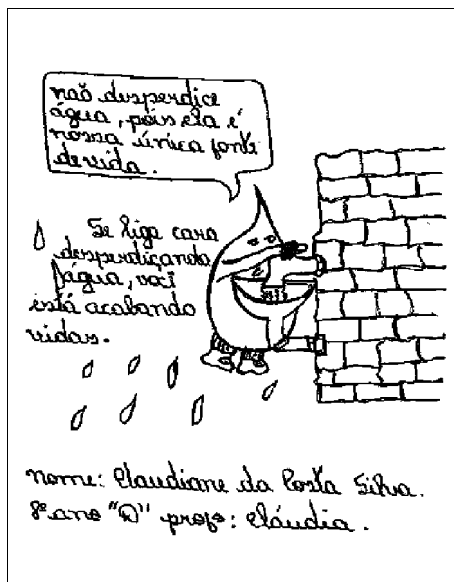 não desperdice
água, pois ela é
nossa única fonte
de vida.
Se liga cara
desperdiçando
água, você
está acabando
vidas.
nome: Claudiane da Costa Silva.
8º ano "D" profª: Cláudia.